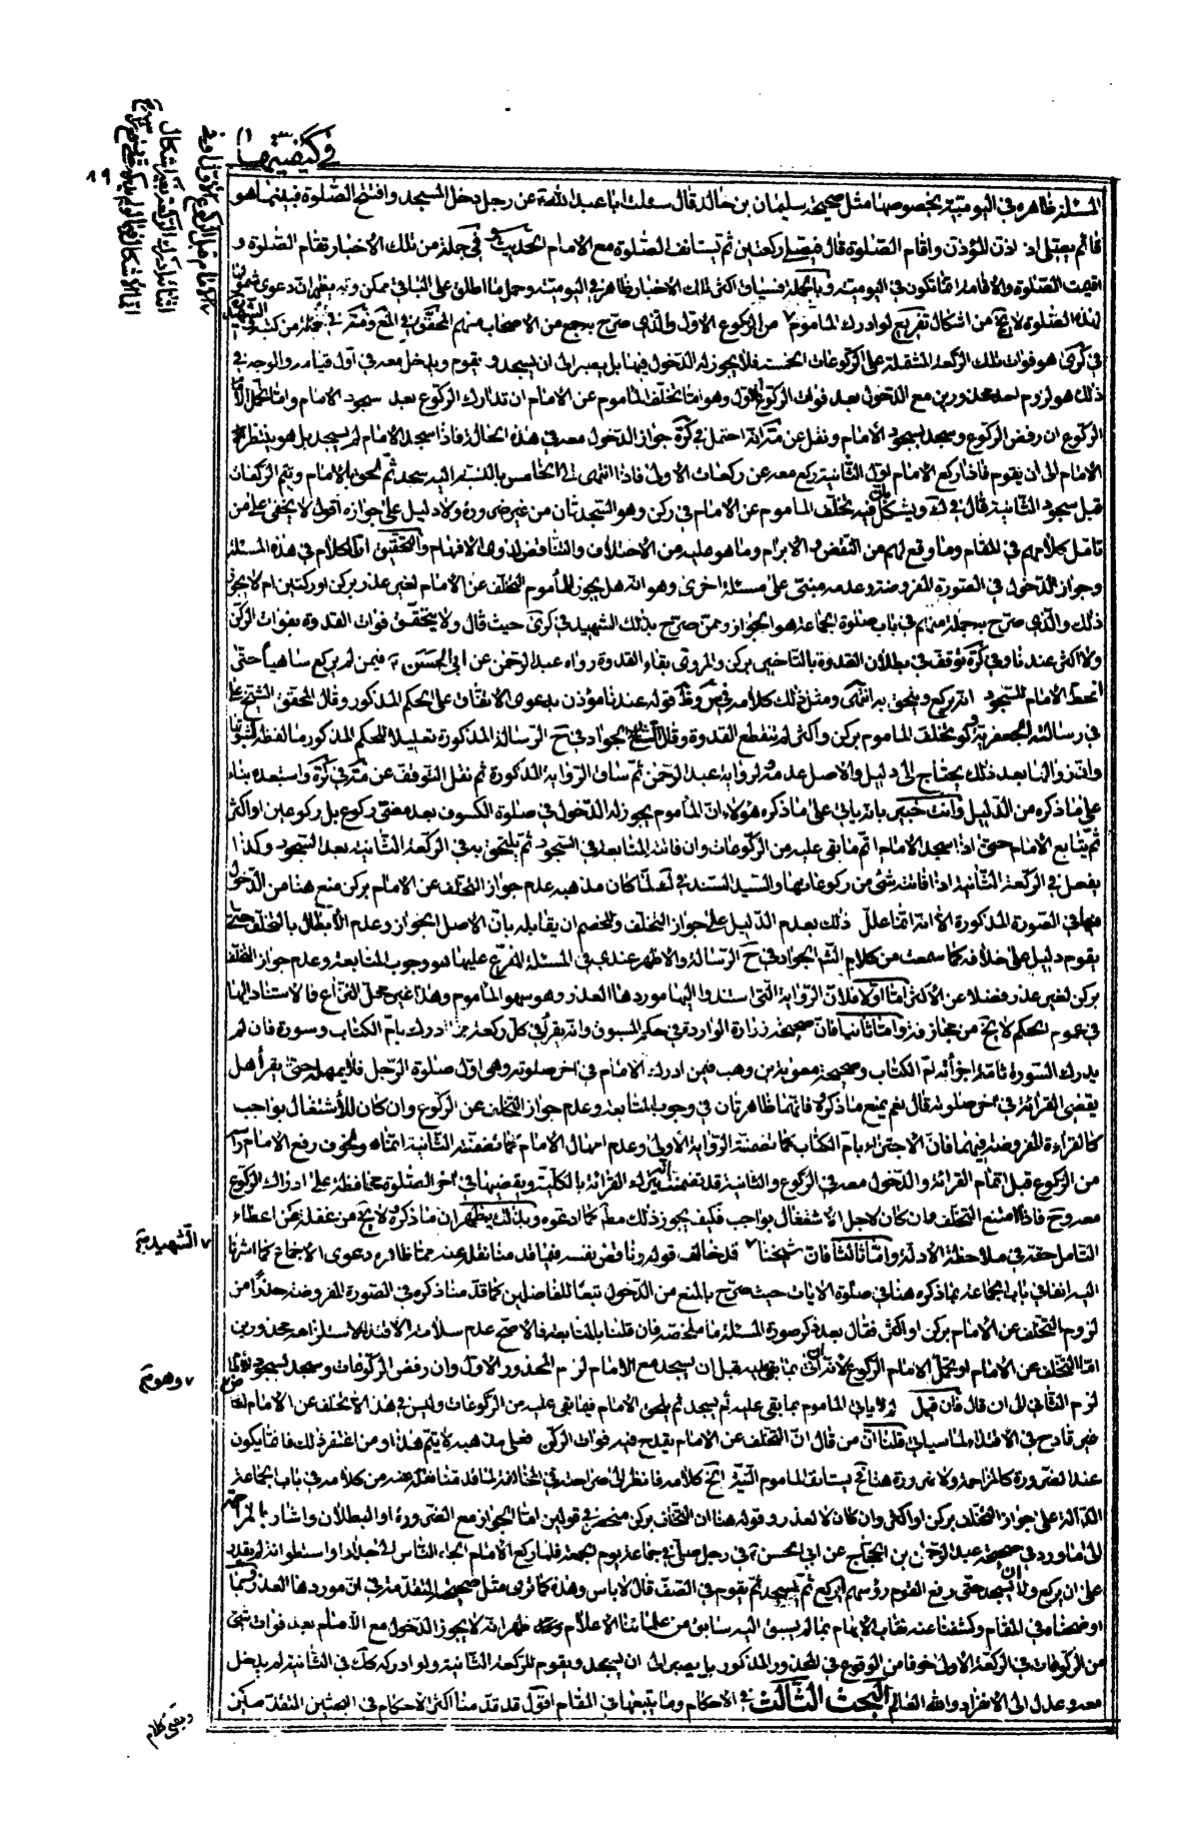 في كيفيتها
٨٩
المسئلة ظاهرة في اليومية بخصوصها مثل صحيحة سليمان بن خالد قال سئلت ابا عبد الله عن رجل دخل المسجد وافتتح الصلوة فبينما هو
قائم يصلى اذ اذن المؤذن واقام الصلوة قال فيصلى ركعتين ثم ليستانف الصلوة مع الامام الحديث وفي جملة من تلك الاخبار تقام الصلوة و
اقيمت الصلوة والاقامة انما تكون في اليومية وبالجملة فسياق اكثر تلك الاخبار ظاهر في اليومية وحمل ما اطلق على الباقي ممكن وبه يظهر ان دعوى شمولها
لهذه الصلوة لا يخ من اشكال تفريع لو ادرك الماموم من الركوع الاول والذي صرح به جمع من الاصحاب منهم المحقق في المع و في جملة من كتبه
في كرى هو فوات تلك الركعة المشتملة على الركوعات الخمسة فلا يجوز له الدخول فيها بل يصبر الى ان يسجد و يقوم ويدخل معه في اول قيامه والوجه في
ذلك هو لزوم احد محذورين مع الدخول بعد فوات الركوع الاول وهو اما تخلف الماموم عن الامام ان تدارك الركوع بعد سجود الامام واما
الركوع ان رفض الركوع وسجد بسجود الامام ونقل عن كره انه احتمل في كرة جواز الدخول معه في هذه الحالة فاذا سجد الامام لم يسجد بل هو ينتظر
الامام الى ان يقوم فاذا ركع الامام اول الثانية ركع معه عن ركعات الاولى فاذا انتهى الى الخامس بالنسبة اليه سجد ثم لحق بالامام ويتم الركعات
قبل سجود الثانية قال في ويشكل بان فيه تخلف الماموم عن الامام في ركن وهو السجدتان من غير ضرورة ولا دليل على جوازه اقول لا يخفى على من
تامل كلامهم في المقام وما وقع لهم من النقض و الابرام وما هو عليه من الاختلاف والتناقض لذوي الافهام والتحقيق ان الكلام في هذه المسئلة
وجواز الدخول في الصورة المفروضة وعدمه مبنى على مسئلة اخرى وهو انه هل يجوز للماموم التخلف عن الامام لغير عذر بركن او ركنين ام لا يجوز
ذلك والذي صرح به جملة منهم في باب صلوة الجماعة هو الجواز وممن صرح بذلك الشهيد في كرى حيث قال ولا يتحقق فوات القدوة بفوات الركن
ولا اكثر عندنا وفي كرة توقف في بطلان القدوة بالتاخير بركن والمروى بقاء القدوة رواه عبد الرحمن عن ابي الحسن فيمن لم يركع ساهيا حتى
انحط الامام للسجود انه يركع ويلحق به انتهى ومثل ذلك كلامه في س وظ قوله عندنا مؤذن بدعوى الاتفاق على الحكم المذكور وقال المحقق الشيخ على
في رسالته الجعفرية ولو تخلف الماموم بركن واكثر لم تنقطع القدوة وقال الشيخ الجواد في ح الرسالة المذكورة تعليلا للحكم المذكور ما لفظه
وان زوالها بعد ذلك يحتاج الى دليل والاصل عدمه ولرواية عبد الرحمن ثم ساق الرواية المذكورة ثم نقل التوقف عن في كرة واستبعده بناء
على ما ذكره من الدليل وانت خبير بانه ياتي على ما ذكره هؤلاء ان الماموم يجوز له الدخول في صلوة الكسوف بعد مضى ركوع بل ركوعين او اكثر
ثم يتابع الامام حتى اذا سجد الامام اتم ما بقى عليه من الركوعات وان فاتته المتابعة في السجود ثم يلتحق به في الركعة الثانية بعد السجود وكذا
يفعل في الركعة الثانية اذا فاته شئ من ركوعاتها والسيد السند في ك لما كان مذهبه عدم جواز التخلف عن الامام بركن منع هنا من الدخول
معه في الصورة المذكورة الا انه انما علل ذلك بعدم الدليل على جواز التخلف وللخصم ان يقابله بان الاصل الجواز وعدم الابطال بالتخلف حتى
يقوم دليل على خلافه كما سمعت من كلام الشيخ الجواد في ح الرسالة والاظهر عندي في المسئلة المفرع عليها هو وجوب المتابعة وعدم جواز التخلف
بركن لغير عذر فضلا عن الاكثر اما اولا فلان الرواية التي استندوا اليها موردها العذر وهو سهو الماموم وهذا غير محل النزاع فالاستناد اليها
في عموم الحكم لا يخ من مجازفة واما ثانيا فان صحيحة زرارة الواردة في حكم المسبوق وانه يقرأ في كل ركعة مما ادرك بام الكتاب وسورة فان لم
يدرك السورة تامة اجزأته ام الكتاب وصحيحة معوية بن وهب فيمن ادرك الامام في اخر صلوته وهى اول صلوة الرجل فلا يمهله حتى يقرأ هل
يقضى القرائة في اخر صلوته قال نعم يمنع ما ذكروه فانهما ظاهرتان في وجوب المتابعة وعدم جواز التخلف عن الركوع وان كان للأشتغال بواجب
كالقراءة المفروضة فيهما فان الاجتزاء بام الكتاب كما تضمنته الرواية الاولى وعدم امهال الامام كما تضمنته الثانية انما هو لخوف رفع الامام رأسه
من الركوع قبل اتمام القرائة والدخول معه في الركوع والثانية قد تضمنت ترك القرائة بالكلية ويقضيها في اخر الصلوة محافظة على ادراك الركوع
معه وح فاذا امتنع التخلف وان كان لاجل الاشتغال بواجب فكيف يجوز ذلك مط كما ادعوه وبذلك يظهر ان ما ذكروه لا يخ من غفلة عن اعطاء
التامل حقه في ملاحظة الادلة واما ثالثا فان شيخنا قد خالف قوله وناقض نفسه فيما قدمنا نقله عنه مما ظاهره دعوى الاجماع كما اشرنا
اليه انفا في باب الجماعة بما ذكره هنا في صلوة الايات حيث صرح بالمنع من الدخول تبعا للفاضلين كما قدمنا ذكره في الصورة المفروضة حذرا من
لزوم التخلف عن الامام بركن او اكثر فقال بعد ذكر صورة المسئلة ما ملخصه فان قلنا بالمتابعة فالاصح عدم سلامة الاقتداء لاستلزامه محذورين
اما التخلف عن الامام او تحمل الامام الركوع لانه ان اتى بما بقى عليه قبل ان يسجد مع الامام لزم المحذور الاول وان رفض الركوعات وسجد بسجود
لزم الثاني الى ان قال فان قيل لم لا ياتي الماموم بما بقى عليه ثم يسجد ثم يلحق الامام فيما بقى عليه من الركوعات وليس في هذا الا تخلف عن الامام
غير قادح في الاقتداء لما سياتي قلنا ان من قال ان التخلف عن الامام يقدح فيه فوات الركن فعلى مذهبه لا يتم هذا ومن اغتفر ذلك فانما يكون
عند الضرورة كالمزاحمة ولا ضرورة هنا الى اخر كلامه فانظر الى صراحته في المخالفة لما قدمنا نقله عنه من كلامه في باب الجماعة
الدالة على جواز التخلف بركن او اكثر وان كان لا لعذر وقوله هنا ان التخلف بركن منحصر في قولين اما الجواز مع الضرورة او البطلان واشار بالمزاحمة
الى ما ورد في صحيحة عبد الرحمن بن الحجاج عن ابي الحسن في رجل صلى في جماعة يوم الجمعة فلما ركع الامام الجاه الناس الى جدار او اسطوانة لم يقدر
على ان يركع ولا ان يسجد حتى رفع القوم رؤسهم ايركع ثم يسجد ثم يقوم في الصف قال لا باس وهذه كما ترى مثل صحيحة المتقدمة في ان موردها العذر وبما
اوضحناه في المقام وكشفنا عنه نقاب الابهام بما لم يسبق اليه سابق من علمائنا الاعلام ظهر انه لا يجوز الدخول مع الامام بعد فوات شئ
من الركوعات في الركعة الاولى خوفا من الوقوع في المحذور المذكور بل يصبر الى ان يسجد ويقوم للركعة الثانية ولو ادركه كك في الثانية لم يدخل
معه وعدل الى الانفراد والله العالم البحث الثالث في الاحكام وما يتبعها في المقام اقول قد قدمنا اكثر الاحكام في البحثين المتقدمين
الشهيد
وهو
وبقى كلام